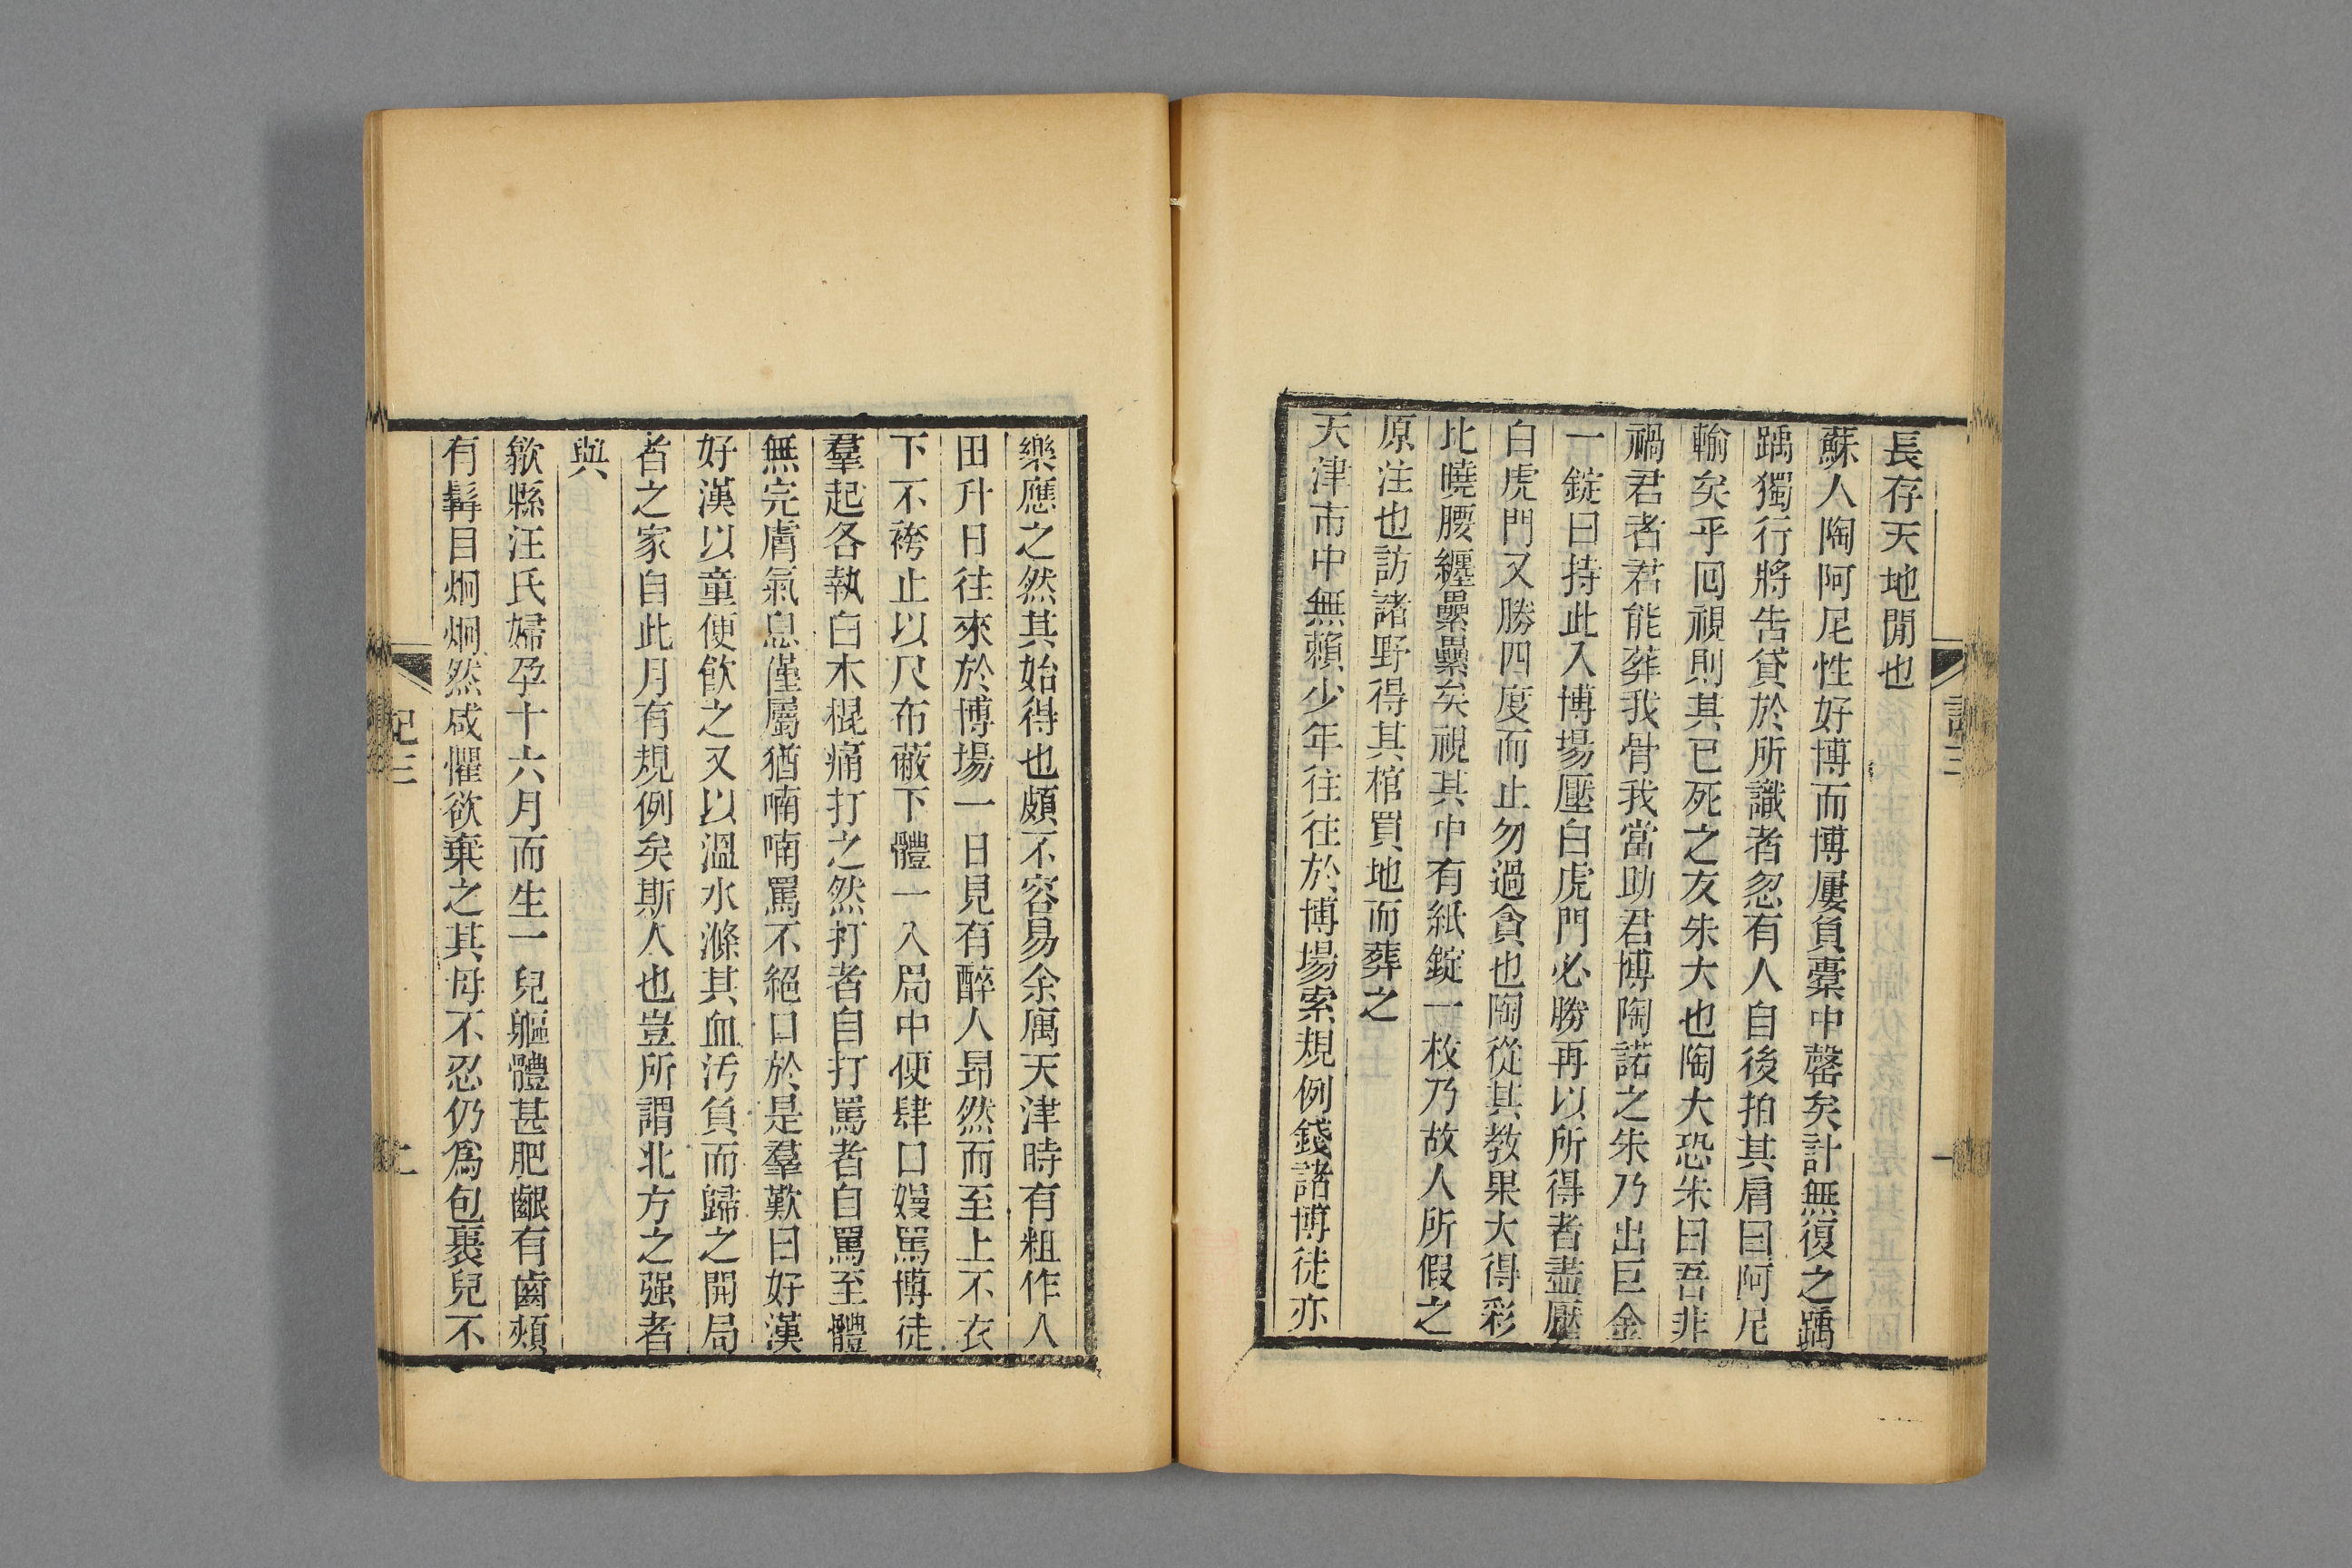 長存天地閒也
蘇人陶阿尼性好博而博屢負槖中罄矣計無復之踽
踽獨行將告貸於所識者忽有人自後拍其肩曰阿尼
輸矣乎囘視則其已死之友朱大也陶大恐朱曰吾非
禍君者君能葬我骨我當助君博陶諾之朱乃出巨金
一錠曰持此入博場壓白虎門必勝再以所得者盡壓
白虎門又勝四度而止勿過貪也陶從其教果大得彩
比曉腰纏纍纍矣視其中有紙錠一枚乃故人所假之
原注也訪諸野得其棺買地而葬之
天津市中無賴少年往往於博場索規例錢諸博徒亦
樂應之然其始得也頗不容易余寓天津時有粗作人
田升日往來於博場一日見有醉人昂然而至上不衣
下不袴止以尺布蔽下體一入局中便肆口嫚罵博徒
羣起各執白木棍痛打之然打者自打罵者自罵至體
無完膚氣息僅屬猶喃喃罵不絕口於是羣歎曰好漢
好漢以童便飲之又以溫水滌其血汚負而歸之開局
者之家自此月有規例矣斯人也豈所謂北方之强者
與
歙縣汪氏婦孕十六月而生一兒軀體甚肥齦有齒頰
有髯目炯炯然咸懼欲棄之其母不忍仍爲包裹兒不
記三